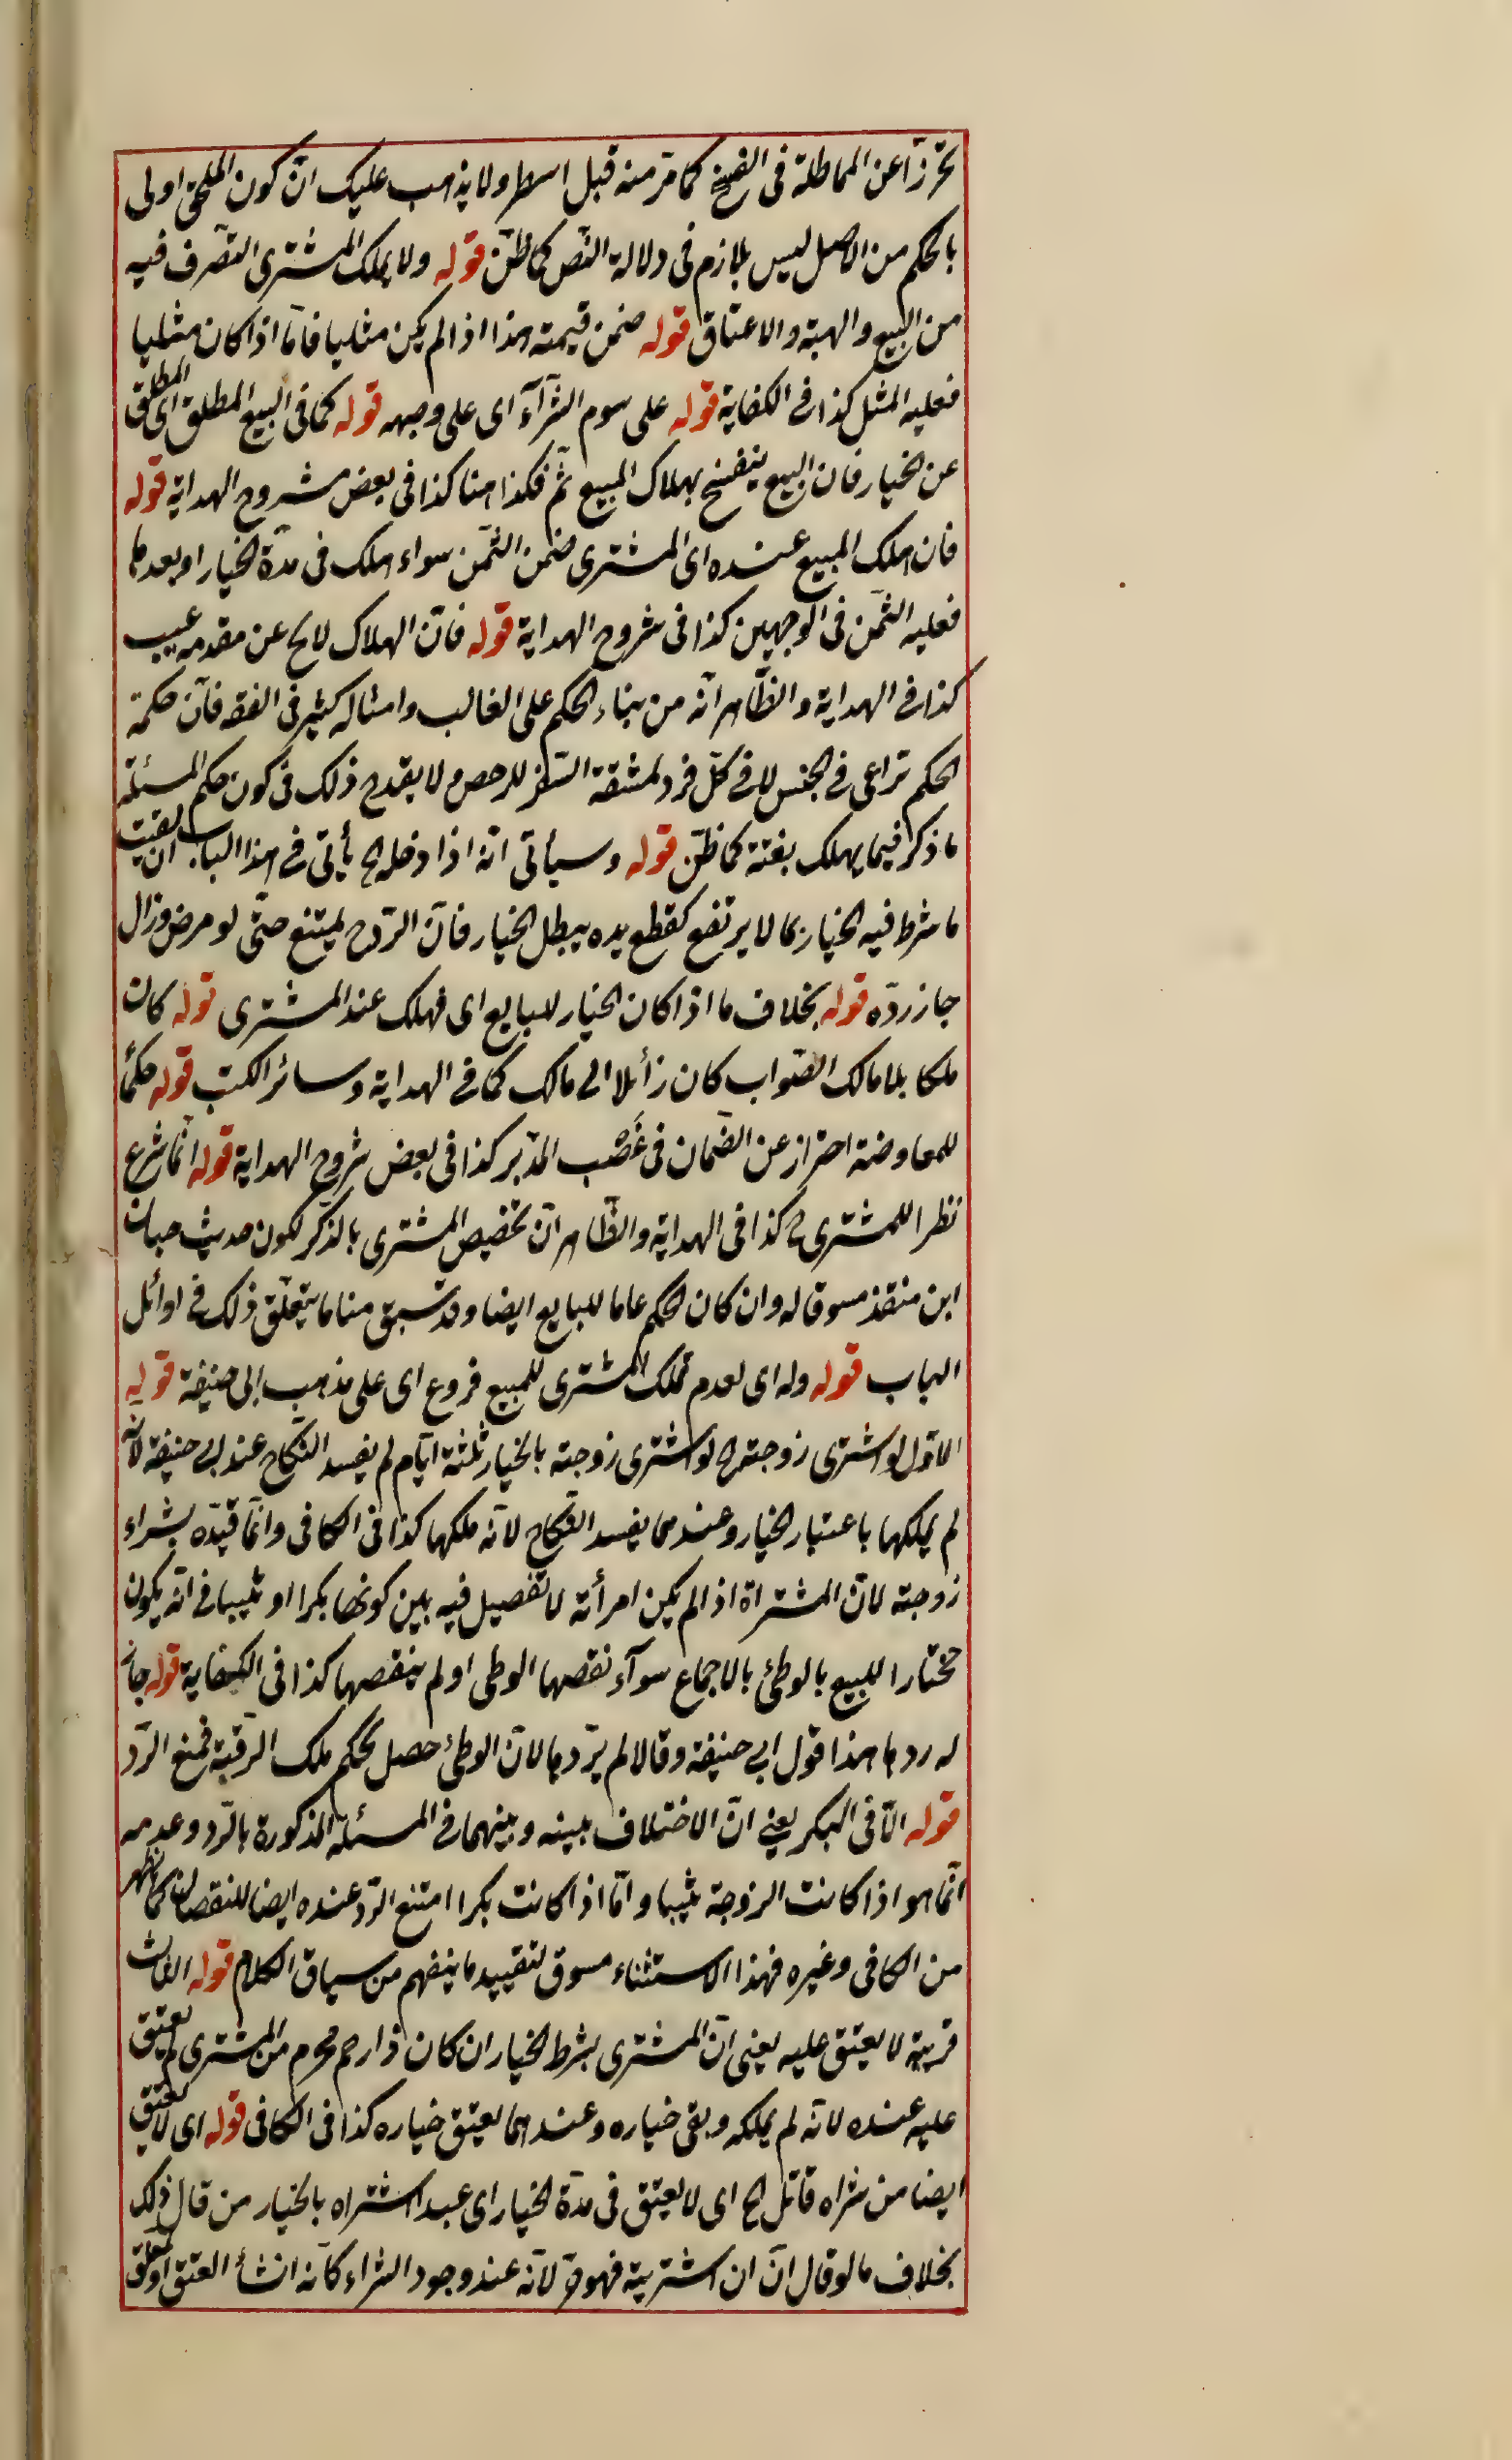 تحرّزا عن المماطلة فى الفسخ كما مرّ منه قبل اسطر ولا يذهب عليك انّ كون الملحق اولى
بالحكم من الاصل ليس بلازم فى دلالة النّص كما ظنّ قوله ولا يملك المشترى التصّرف فيه
من البيع والهبة والاعتاق قوله ضمن قيمته هذا اذا لم يكن مثليا فامّا اذا كان مثليا
فعليه المثل كذا فى الكفاية قوله على سوم الشّرآء اى على وجهه قوله كما فى البيع المطلق اى المطلق
عن الخيار فان البيع ينفسخ بهلاك المبيع ثمّ فكذا هنا كذا فى بعض شروح الهداية قوله
فان هلك المبيع عنده اى المشترى ضمن الثّمن سواء هلك فى مدّة الخيار او بعدها
فعليه الثّمن فى الوجهين كذا فى شروح الهداية قوله فانّ الهلاك لا يخ عن مقدمه عيب
كذا فى الهداية والظّاهر انّه من بناء الحكم على الغالب وامثاله كثير فى الفقه فانّ حكمة
الحكم تراعى فى الجنس لا فى كلّ فرد لمشقة السّفر للرخص ولا يقدح ذلك فى كون حكم المسئلة
ما ذكر فيما يهلك بغتة كما ظنّ قوله وسيأتى انّه اذا دخله الخ يأتى فى هذا الباب ان تعيّب
ما شرط فيه الخيار بما لا يرتفع كقطع يده يبطل الخيار فانّ الرّد ح يمتنع حتّى لو مرض وزال
جاز ردّه قوله بخلاف ما اذا كان الخيار للبايع اى فهلك عند المشترى قوله كان
ملكا بلا مالك الصّواب كان زائلا لا الى مالك كما فى الهداية وسائر الكتب قوله حكما
للمعاوضة احتراز عن الضّمان فى غَصْب المدّبر كذا فى بعض شروح الهداية قوله انّما شرع
نظرا للمشترى ح كذا فى الهداية والظّاهر انّ تخصيص المشترى بالذّكر لكون حديث حبان
ابن منقذ مسوقا له وان كان الحكم عاما للبايع ايضا وقد سبق منا ما يتعلّق ذلك فى اوائل
الباب قوله وله اى لعدم تملك المشترى للمبيع فروع اى على مذهب ابى حنيفة قوله
الاوّل لو اشترى زوجته الخ لو اشترى زوجته بالخيار ثلثة ايّام لم يفسد النّكاح عند ابى حنيفة لانّه
لم يملكها باعتبار الخيار وعندهما يفسد النّكاح لانّه ملكها كذا فى الكافى وانّما قيّده بشراء
زوجته لانّ المشتراة اذا لم يكن امرأته لا تفصيل فيه بين كونها بكرا او ثيبا فى انّه يكون
مختارا للبيع بالوطئ بالاجماع سوآء نقصها الوطى او لم ينقصها كذا فى الكفاية قوله جاز
له ردها هذا قول ابى حنيفة وقالا لم يرّدها لانّ الوطئ حصل بحكم ملك الرّقبة فمنع الرّد
قوله الّا فى البكر يعنى انّ الاختلاف بينه وبينهما فى المسئلة المذكورة بالّرد وعدمه
انّما هو اذا كانت الزوجة ثيبا وامّا اذا كانت بكرا امتنع الرّد عنده ايضا للنقصان كما يظهر
من الكافى وغيره فهذا الاستثناء مسوق لتقييد ما ينفهم من سياق الكلام قوله الثالث
قريبه لا يعتق عليه يعنى انّ المشترى بشرط الخيار ان كان ذا رحم محرم من المشترى لم يعتق
عليه عنده لانّه لم يملكه وبقى خياره وعندهما يعتق خياره كذا فى الكافى قوله اى لا يعتق
ايضا من شراه قائل الخ اى لا يعتق فى مدّة الخيار اى عبد اشتراه بالخيار من قال ذلك
بخلاف ما لو قال انّ ان اشتريته فهو حرّ لانّه عند وجود الشراء كانّه انشأ العتق او المعلق